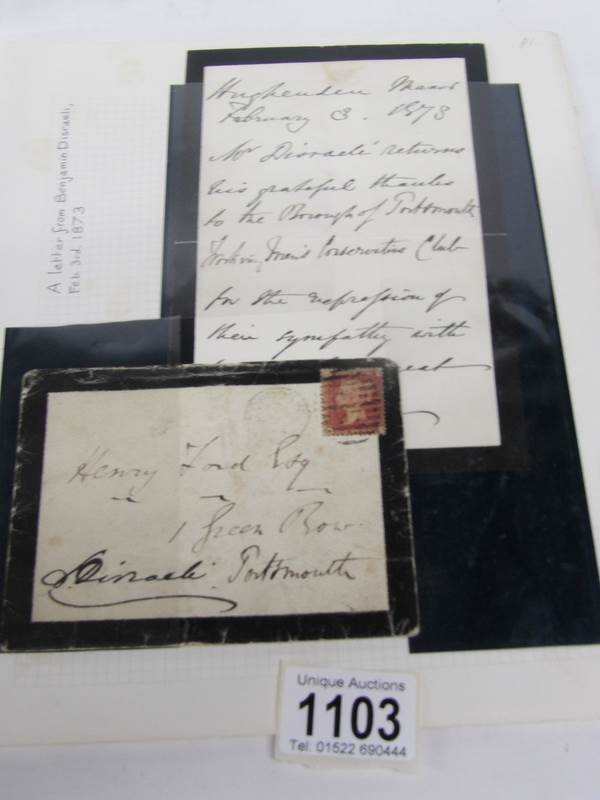 A letter from Benjamin Disraeli,
Feb. 3rd. 1873
Hughenden Manor
February 3. 1873
Mr Disraeli returns
his grateful thanks
to the Borough of Portsmouth
Working Men's Conservative Club
for the expression of
their sympathy with
Henry Ford Esq
1 Green Row
Disraeli. Portsmouth
Unique Auctions
1103
Tel: 01522 690444